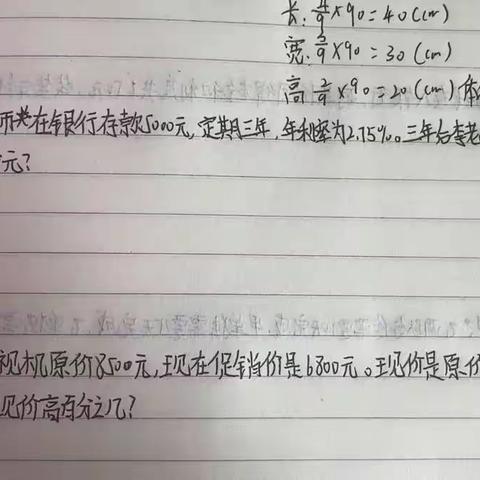 长: 4/9×90=40(cm)
宽: 3/9×90=30(cm)
高 2/9×90=20(cm)
师老在银行存款5000元,定期三年,年利率为2.75%。三年后李老
元?
视机原价8500元,现在促销价是6800元。现价是原价
见价高百分之几?